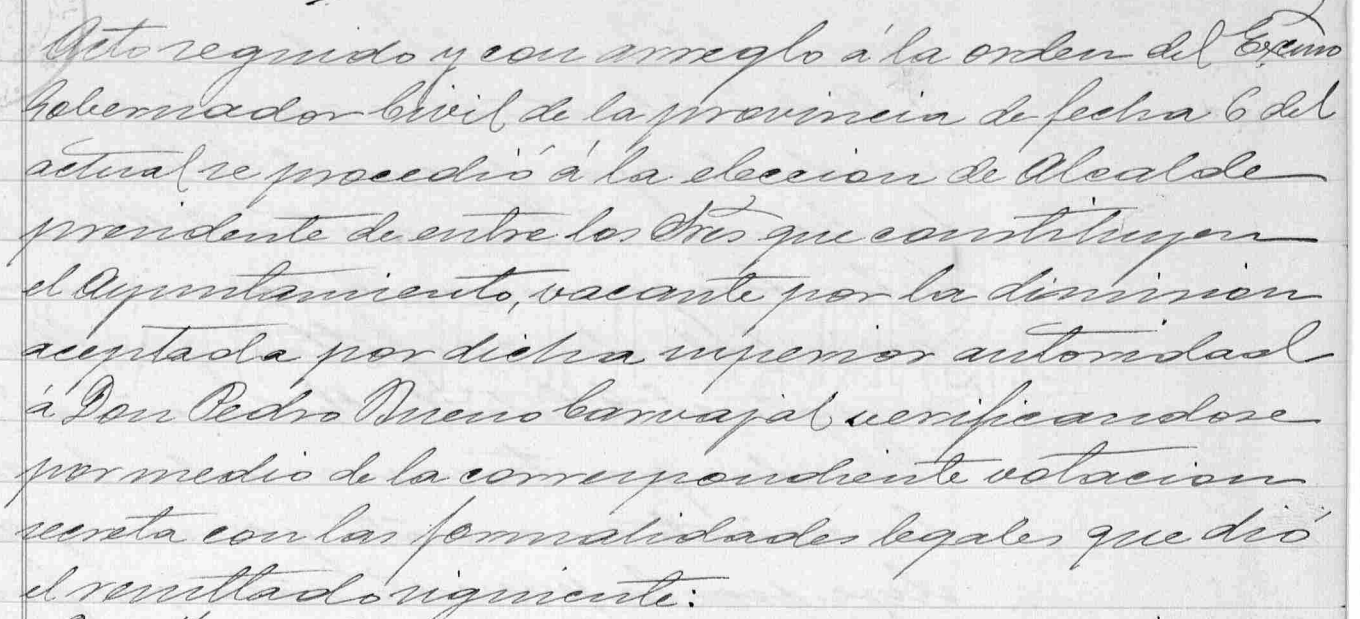 Acto seguido y con arreglo á la orden del Excmo
Gobernador Civil de la provincia de fecha 6 del
actual se procedió á la eleccion de Alcalde
presidente de entre los Sres que constituyen
el Ayuntamiento, vacante por la dimision
aceptada por dicha superior autoridad
á Don Pedro Bueno Carvajal, verificandose
por medio de la correspondiente votacion
secreta con las formalidades legales que dió
el resultado siguiente: